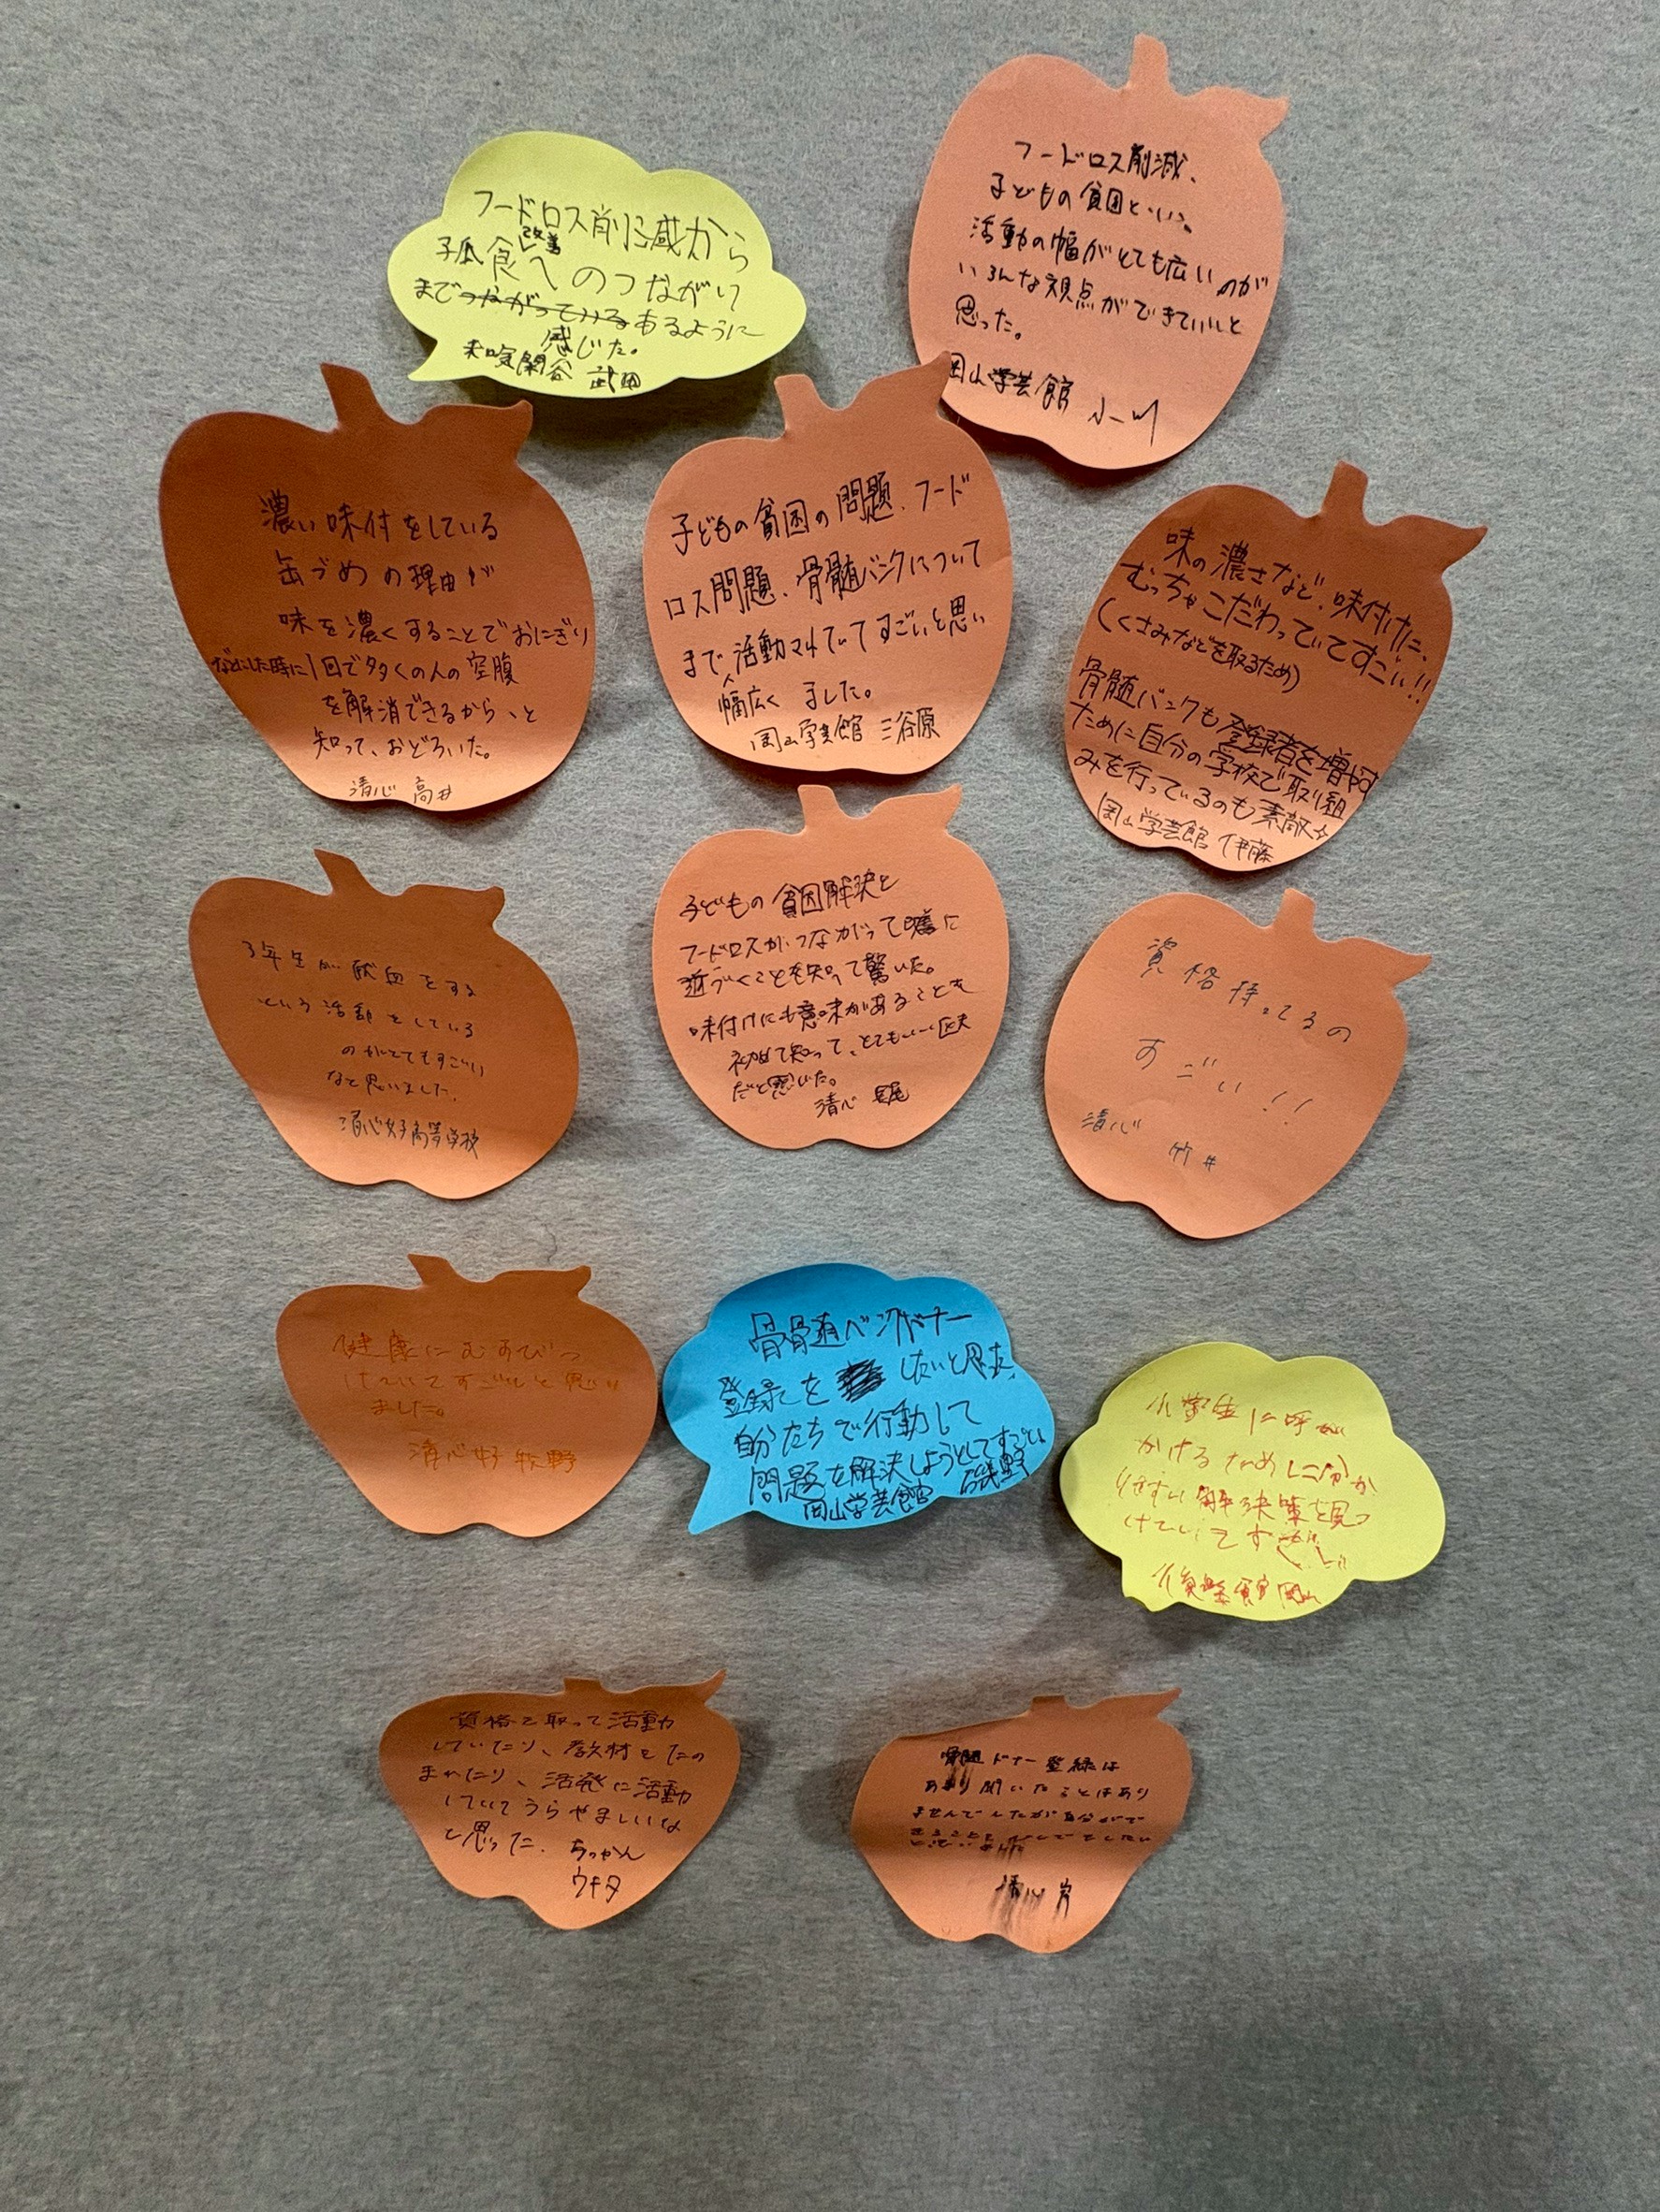 フードロス削減から
孤食改善へのつながり
まであるように
感じた。
閑谷 武田
フードロス削減、
子どもの貧困といい、
活動の幅がとても広いのが
いろんな視点ができていいと
思った。
岡山学芸館 小川
濃い味付をしている
缶づめの理由が
味を濃くすることでおにぎり
などにした時に1回で多くの人の空腹
を解消できるから、と
知って、おどろいた。
清心 高井
子どもの貧困の問題、フード
ロス問題、骨髄バンクについて
まで幅広く活動していてすごいと思い
ました。
岡山学芸館 三谷原
味の濃さなど、味付けに、
むっちゃこだわっていてすごい!!
(くさみなどを取るため)
骨髄バンクも登録者を増やす
ために自分の学校で取り組
みを行っているのも素敵☆
岡山学芸館 伊藤
3年生が献血をする
という活動をしている
のがとてもすごい
なと思いました。
清心女子高等学校
子どもの貧困解決と
フードロスがつながって
近づくことを知って驚いた。
味付けにも意味があることを
初めて知って、とてもいい工夫
だと思いた。
清心
資格持ってるの
すごい!!
清心
竹井
健康にむすびつ
けていてすごいと思い
ました。
清心女子 牧野
骨髄バンクドナー
登録を したいと思った。
自分たちで行動して
問題を解決しようとしてすごい
岡山学芸館 磯野
小学生に呼び
かけるために分か
りやすい解決策を見つ
けていてすごい
資格を取って活動
していたり、教材をたの
まれたり、活発に活動
していてうらやましいな
と思った。
骨髄ドナー登録は
あまり聞いたことはあり
ませんでしたが自分がで
清心